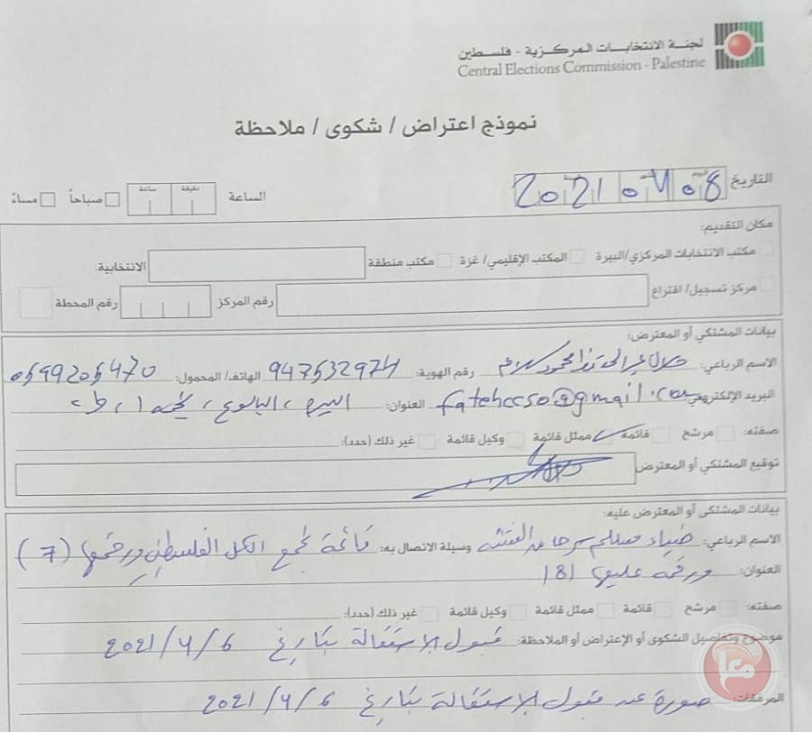 لجنة الانتخابات المركزية - فلسطين
Central Elections Commission - Palestine
نموذج اعتراض / شكوى / ملاحظة
التاريخ 2021 04 08 الساعة دقيقة ساعة صباحاً مساءً
مكان التقديم:
مكتب الانتخابات المركزي/البيرة المكتب الإقليمي/ غزة مكتب منطقة الانتخابية.
مركز تسجيل/ اقتراع رقم المركز رقم المحطة
بيانات المشتكي أو المعترض:
الاسم الرباعي: محمود رقم الهوية: 947532974 الهاتف/ المحمول: 0599205470
البريد الإلكتروني: fatehccso@gmail.com العنوان: البيرة، البالوع،
صفته: مرشح قائمة ممثل قائمة وكيل قائمة غير ذلك (حدد):
توقيع المشتكي أو المعترض
بيانات المشتكى أو المعترض عليه:
الاسم الرباعي: ضياء وسيلة الاتصال به: قائمة الكل الفلسطيني ورقمها (7)
العنوان: ورقمه 181
صفته: مرشح قائمة ممثل قائمة وكيل قائمة غير ذلك (حدد):
موضوع وتفاصيل الشكوى أو الإعتراض أو الملاحظة: قبول الاستقالة بتاريخ 2021/4/6
المرفقات: صورة عن قبول الاستقالة بتاريخ 2021/4/6
معا